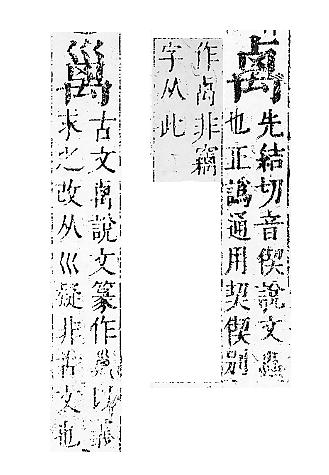 卨
先結切音偰說文蟲
也正譌通用契偰別
作卨非竊
字从此
古文卨說文篆作以
求之改从巛疑非古文也